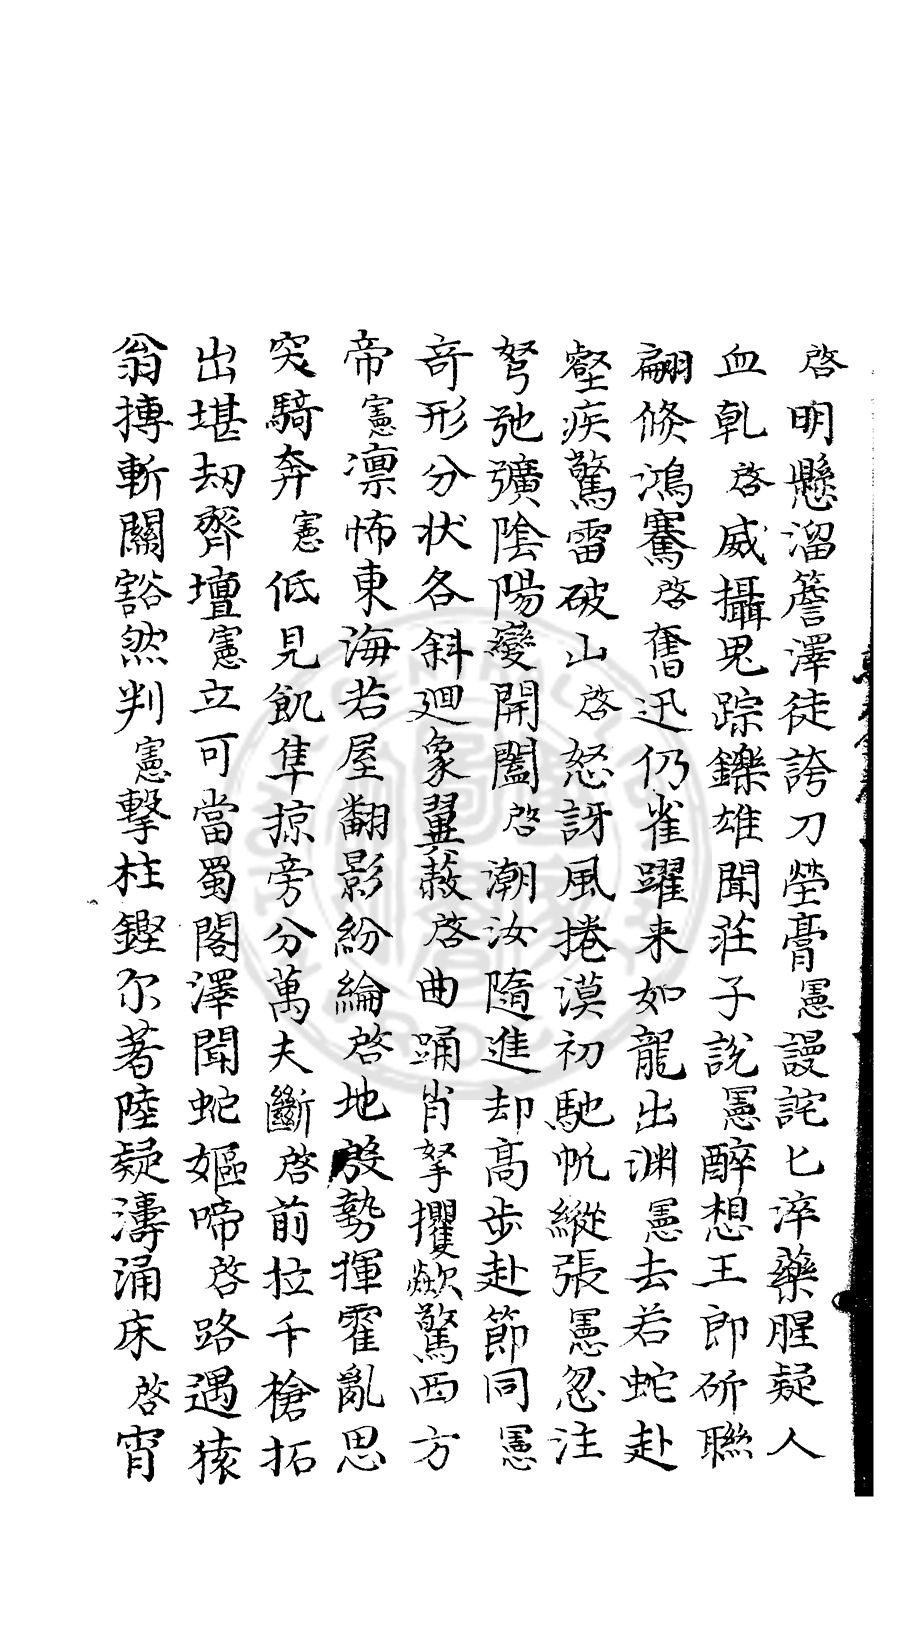 啓明懸溜簷澤徒誇刀瑩膏憲謾詫匕淬藥腥疑人
血乹啓威攝鬼踪鑠雄聞莊子說憲醉想王郎斫聯
翩倏鴻騫啓奮迅仍雀躍来如龍出渊憲去若蛇赴
壑疾驚雷破山啓怒訝風捲漠初馳帆縱張憲忽注
弩弛彍陰陽變開闔啓潮汝隨進却高步赴節同憲
奇形分状各斜廻象翼蔜啓曲踊肖拏攫歘驚西方
帝憲凛怖東海若屋翻影紛綸啓地殷勢揮霍亂思
突騎奔憲低見飢隼掠旁分萬夫斷啓前拉千槍拓
出堪刧齊壇憲立可當蜀閣澤聞蛇嫗啼啓路遇猿
翁搏斬關豁然判憲擊柱鏗尔著陸疑濤涌床啓宵